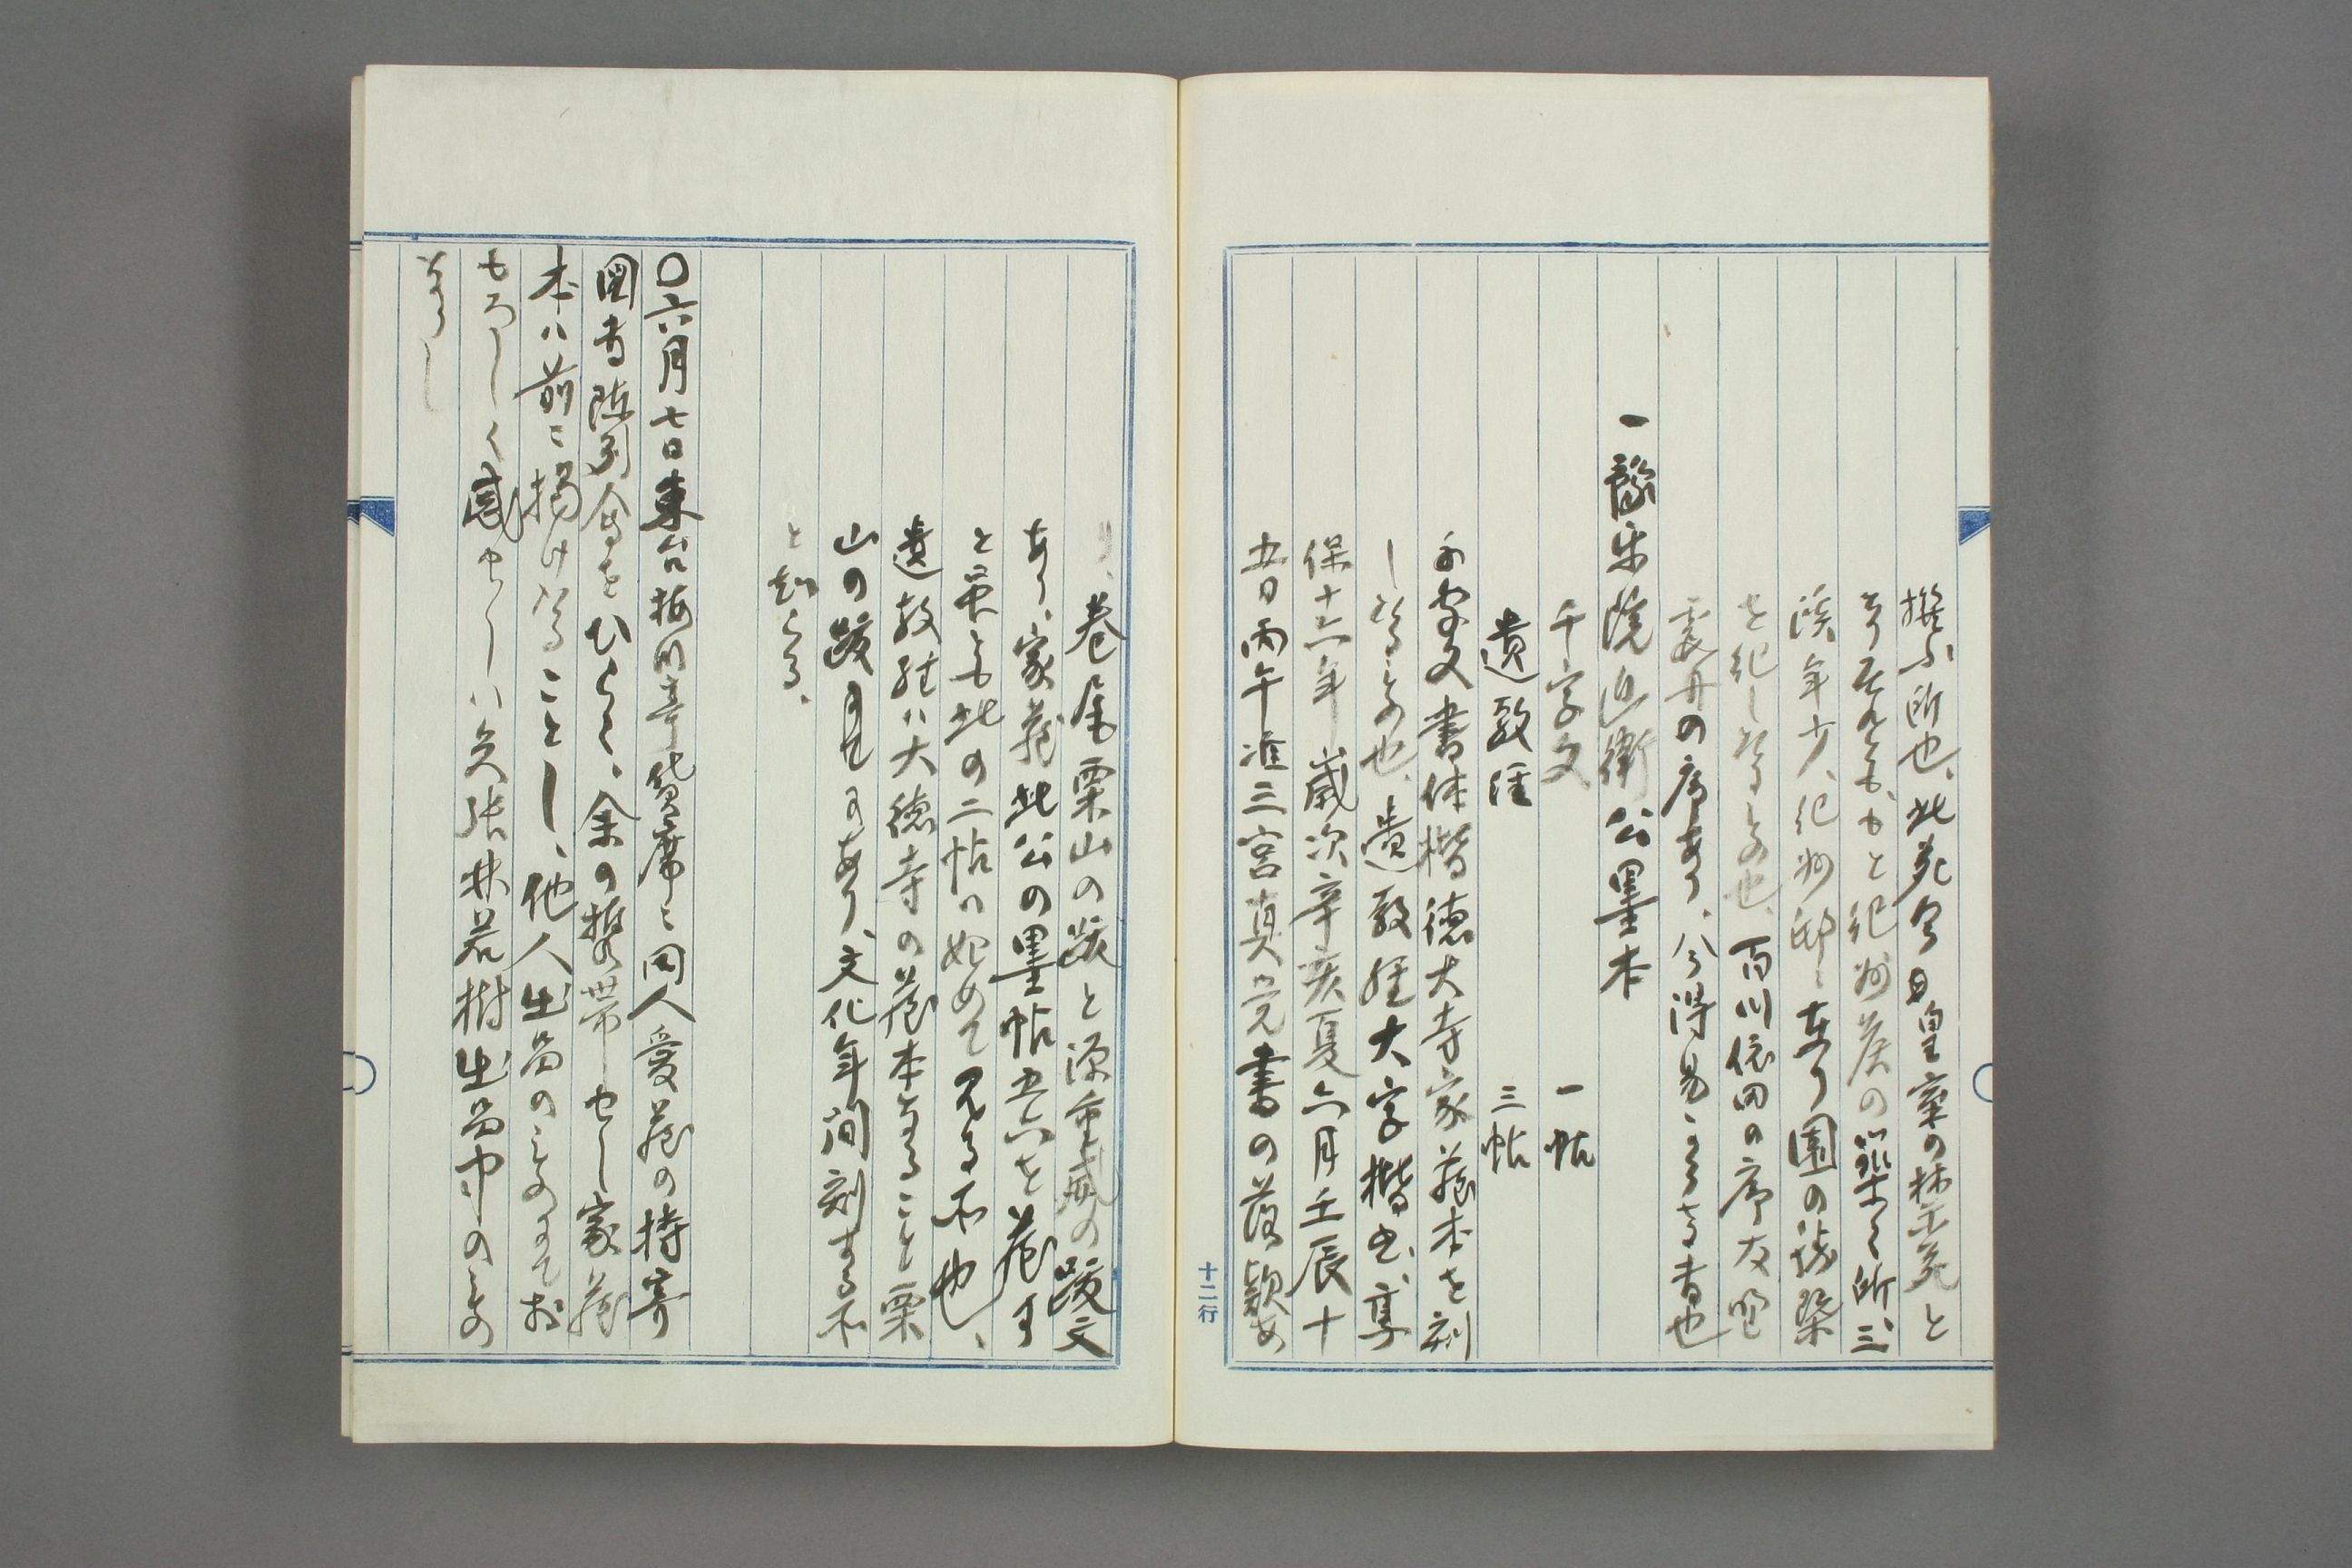 撰ふ所也、此苑今日皇室の禁苑と
なりたれとも、もと紀州侯の築く所、三
渓年少、紀州邸に在り園の独楽
を紀しなるもの也、百川依田の序
の序あり、今得易からさる書也
一豫楽院近衛公墨本
千字文　一帖
遺教経　三帖
千字文書体楷徳大寺家蔵本を刻
しなるもの也、遺教経大字楷也、享
保十六年歳次辛亥夏六月壬辰十
五日丙午准三宮真覚書の落款あ
り、巻尾栗山の跋と源重威の跋文
あり、家蔵此公の墨帖五六を蔵す
と雖とも此の二帖は始めて見る所也、
遺教経ハ大徳寺の蔵本なること栗
山の跋に見えあり、文化年間刻する所
と知らる、
〇六月七日東台梅川亭貸席に同人愛蔵の持寄
図書陳列会をひらく、余の携帯せし家蔵
本ハ前に掲けなることし、他人出品のものにてお
もろしく感せしハ矢張林若樹出品中のもの
なりし
十二行